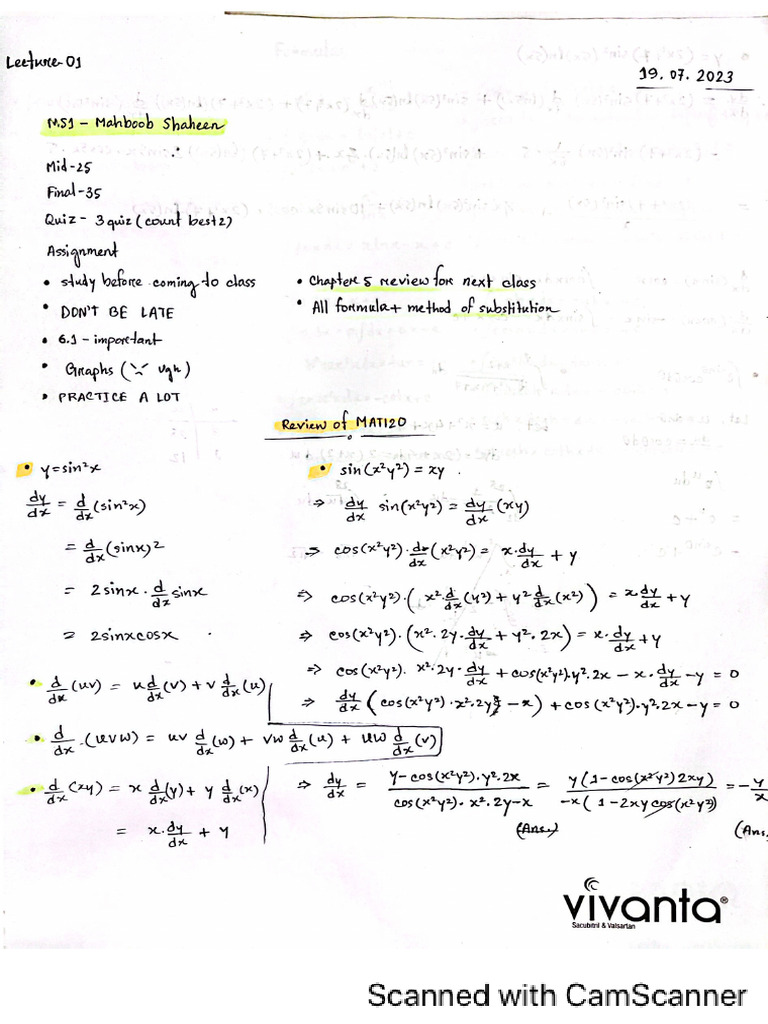 Lecture-01
19.07.2023
MS1 – Mahboob Shaheen
Mid-25
Final-35
Quiz- 3 quiz (count best 2)
Assignment
• study before coming to class
• DON'T BE LATE
• 6.1 - important
• Graphs ( ugh)
• PRACTICE A LOT
• Chapter 5 review for next class
• All formula + method of substitution
Review of MAT120
• y=sin²x
dy/dx = d/dx (sin²x)
= d/dx (sinx)2
= 2 sinx · d/dx sinx
= 2sinxcosx
• d/dx (uv) = u d/dx (v) + v d/dx (u)
• d/dx · (uvw) = uv d/dx (w) + vw d/dx (u) + uw d/dx (v)
• d/dx (xy) = x d/dx (y) + y d/dx (x)
= x·dy/dx + y
• sin(x²y²) = xy.
⇒ dy/dx sin(x²y²) = dy/dx (xy)
⇒ cos(x²y²)· d/dx (x²y²) = x·dy/dx + y
⇒ cos(x²y²)·( x² d/dx (y²) + y² d/dx (x²) ) = x dy/dx + y
⇒ cos(x²y²)·(x²·2y·dy/dx + y²·2x) = x·dy/dx + y
⇒ cos(x²y²)· x²·2y·dy/dx + cos(x²y²)·y²·2x – x·dy/dx – y = 0
⇒ dy/dx ( cos(x²y²)·x²·2y – x) + cos(x²y²)·y²·2x – y = 0
⇒ dy/dx = y-cos(x²y²)·y²·2x / cos(x²y²)· x²·2y-x = y(1-cos(x²y²)2xy) / -x(1-2xy cos(x²y²)) = - y/x
(Ans.) (Ans.
vivanta®
Sacubitril & Valsartan
Scanned with CamScanner